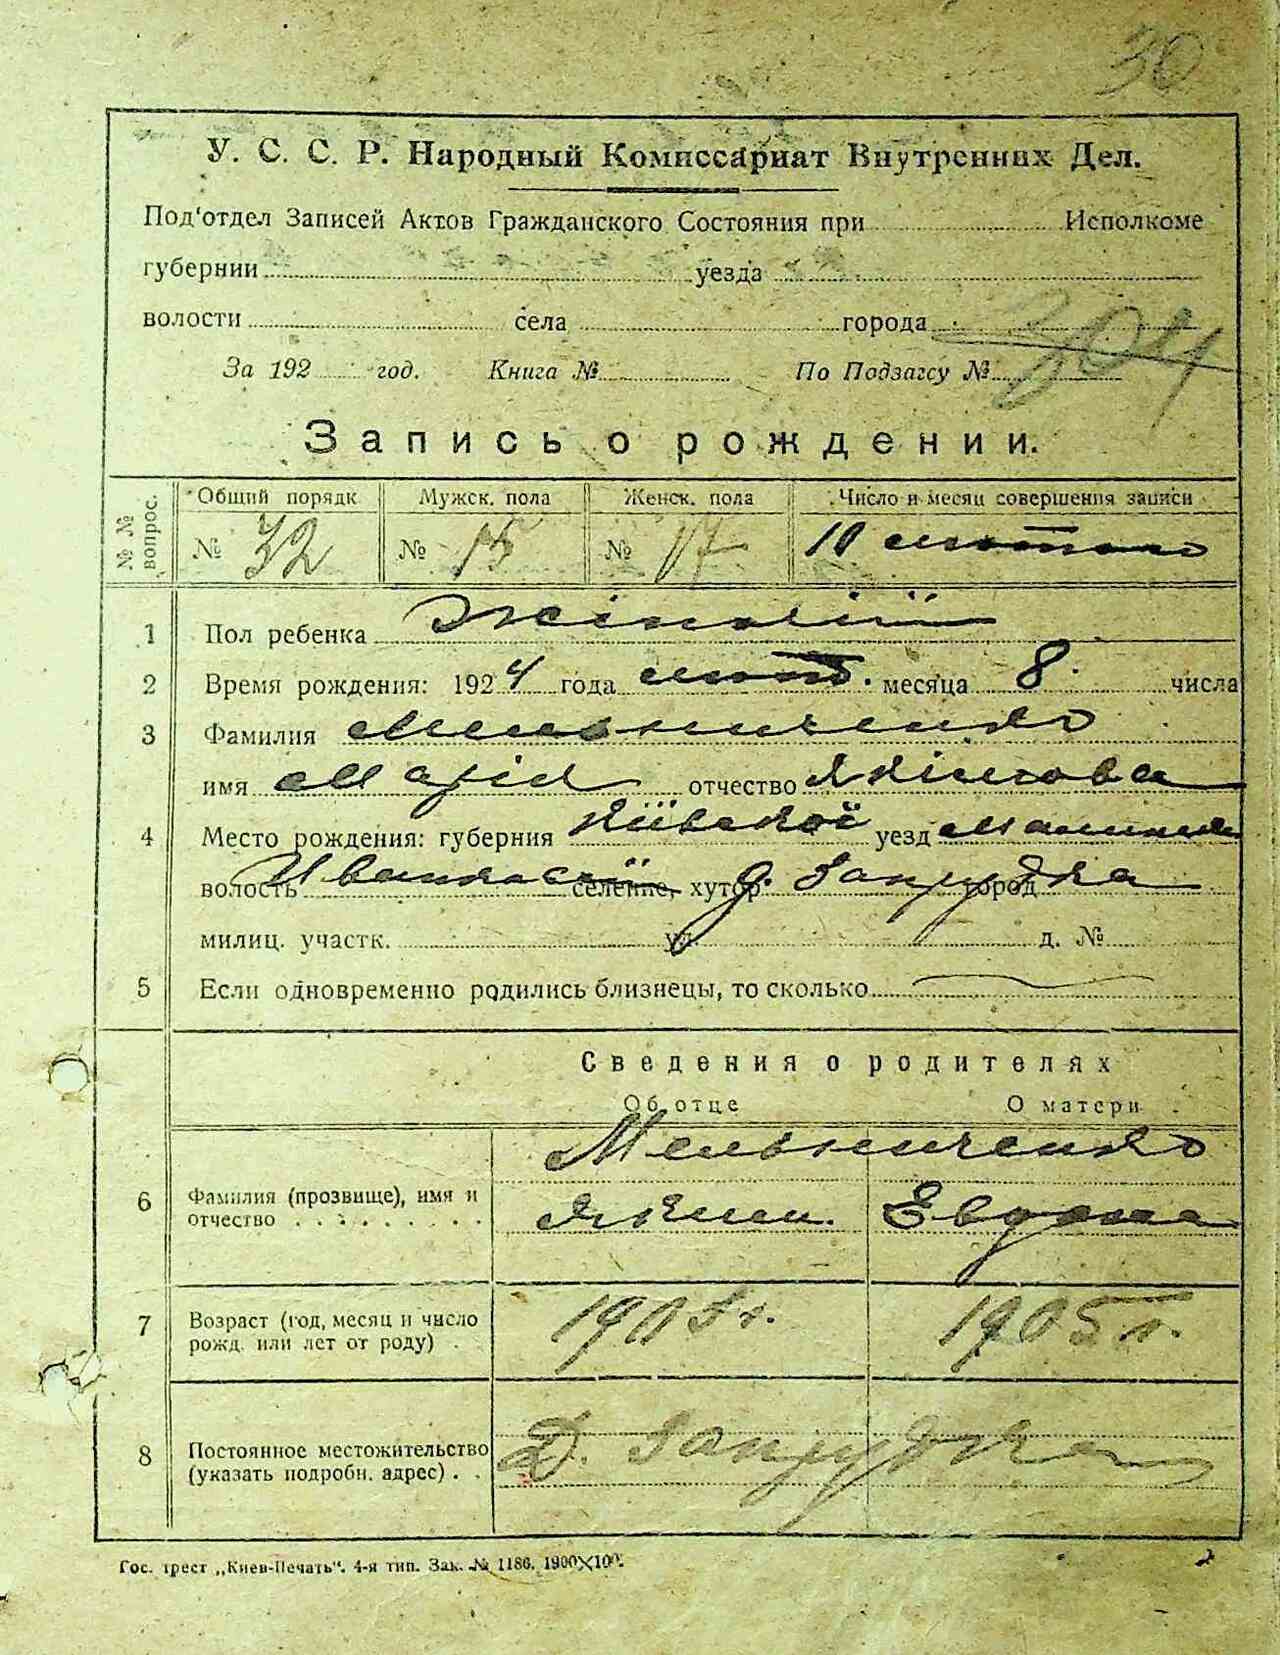 30
У. С. С. Р. Народный Комиссариат Внутренних Дел.
Под'отдел Записей Актов Гражданского Состояния при Исполкоме
губернии уезда
волости села города
304
За 192 год. Книга № По Подзагсу №
Запись о рождении.
№ № вопрос. Общий порядк Мужск. пола Женск. пола Число и месяц совершения записи
№ 32 № 15 № 17 10 лютого
1 Пол ребенка Жіночий
2 Время рождения: 1924 года лют. месяца 8 числа
3 Фамилия Мельниченко
имя Марія отчество Якімова
4 Место рождения: губерния Київської уезд
волость селение, хутор д. Запрудка город
милиц. участк. ул. д. №
5 Если одновременно родились близнецы, то сколько
Сведения о родителях
Об отце О матери
Мельниченко
6 Фамилия (прозвище), имя и отчество Яким. Евдоха
7 Возраст (год, месяц и число рожд. или лет от роду) 1905 г. 1905 г.
8 Постоянное местожительство (указать подробн. адрес) Д. Запрудка
Гос. трест „Киев-Печать". 4-я тип. Зак. № 1186. 1900×100.